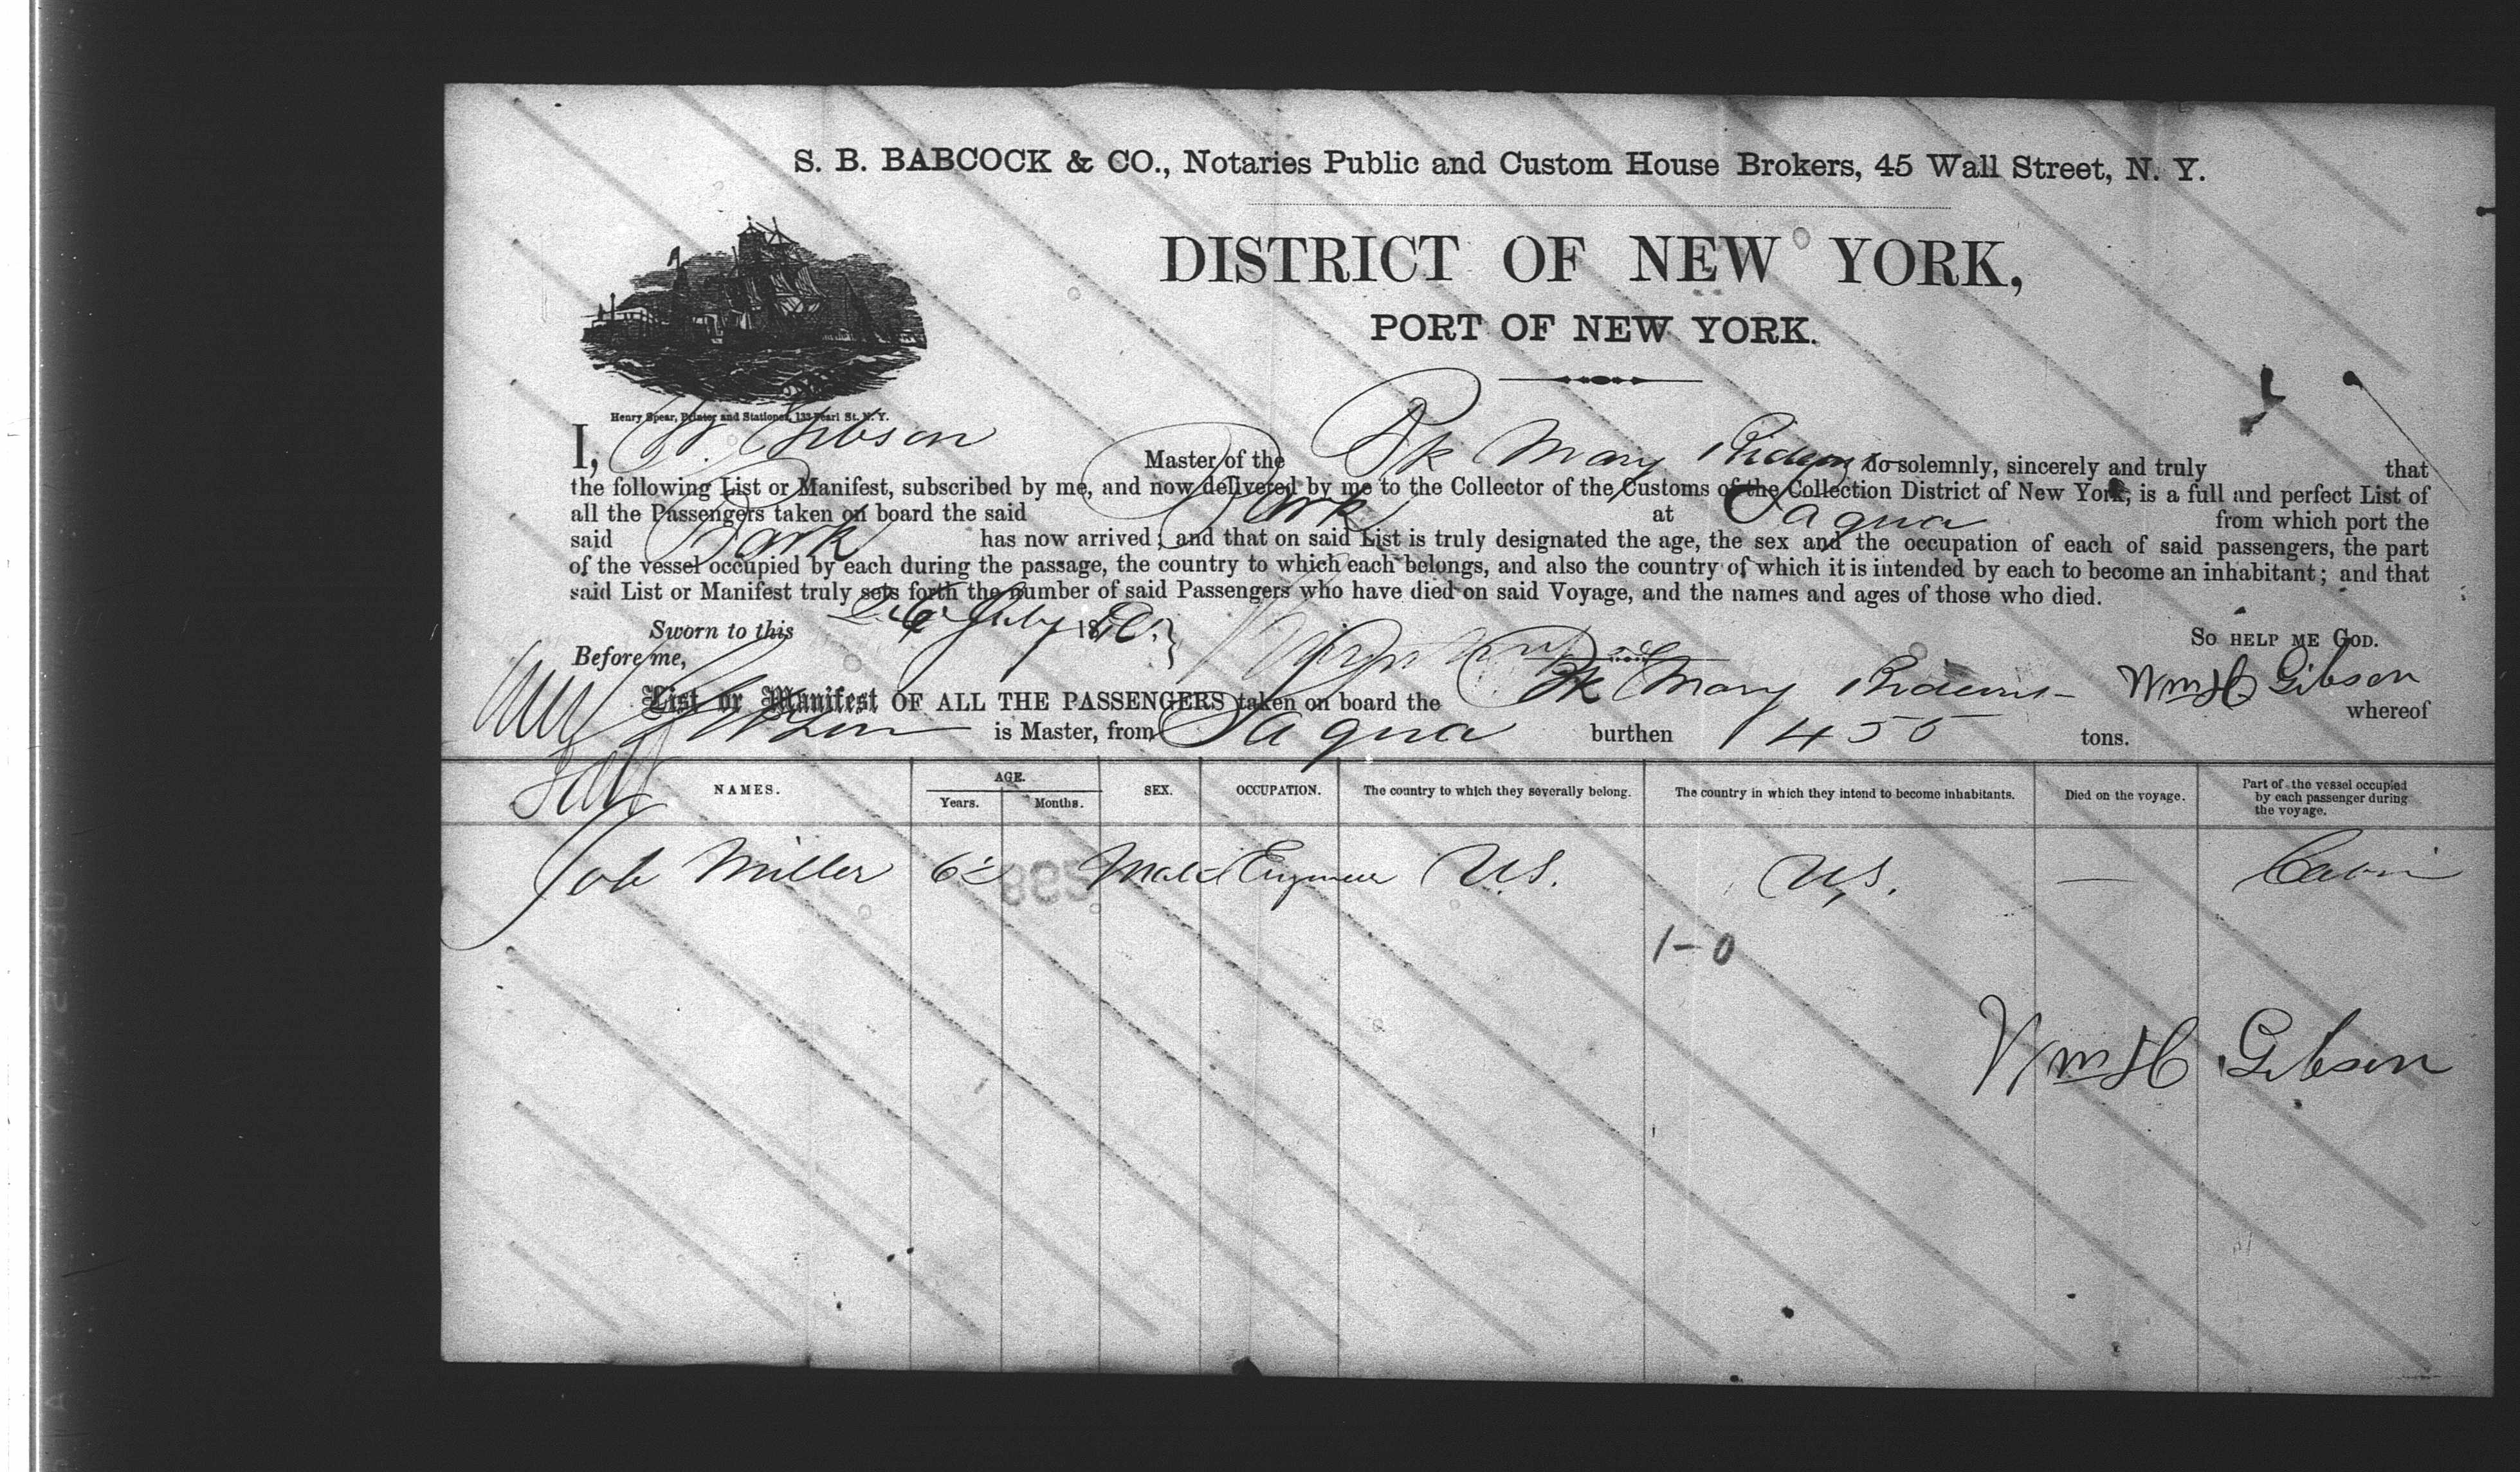 S. B. BABCOCK & CO., Notaries Public and Custom House Brokers, 45 Wall Street, N. Y.
DISTRICT OF NEW YORK,
PORT OF NEW YORK.
Henry Spear, Printer and Stationer, 133 Pearl St. N. Y.
I, Gibson Master of the Bk Mary do solemnly, sincerely and truly that
the following List or Manifest, subscribed by me, and now delivered by me to the Collector of the Customs of the Collection District of New York, is a full and perfect List of
all the Passengers taken on board the said Bark at Sagua from which port the
said Bark has now arrived; and that on said List is truly designated the age, the sex and the occupation of each of said passengers, the part
of the vessel occupied by each during the passage, the country to which each belongs, and also the country of which it is intended by each to become an inhabitant; and that
said List or Manifest truly sets forth the number of said Passengers who have died on said Voyage, and the names and ages of those who died.
Sworn to this 26 July 18 So help me God.
Before me, Wm H Gibson
List or Manifest OF ALL THE PASSENGERS taken on board the Bk Mary whereof
Gibson is Master, from Sagua burthen 455 tons.
NAMES. AGE. SEX. OCCUPATION. The country to which they severally belong. The country in which they intend to become inhabitants. Died on the voyage. Part of the vessel occupied by each passenger during the voyage.
Years. Months.
Job Miller Male Engineer U.S. U.S. — Cabin
1-0
Wm H Gibson